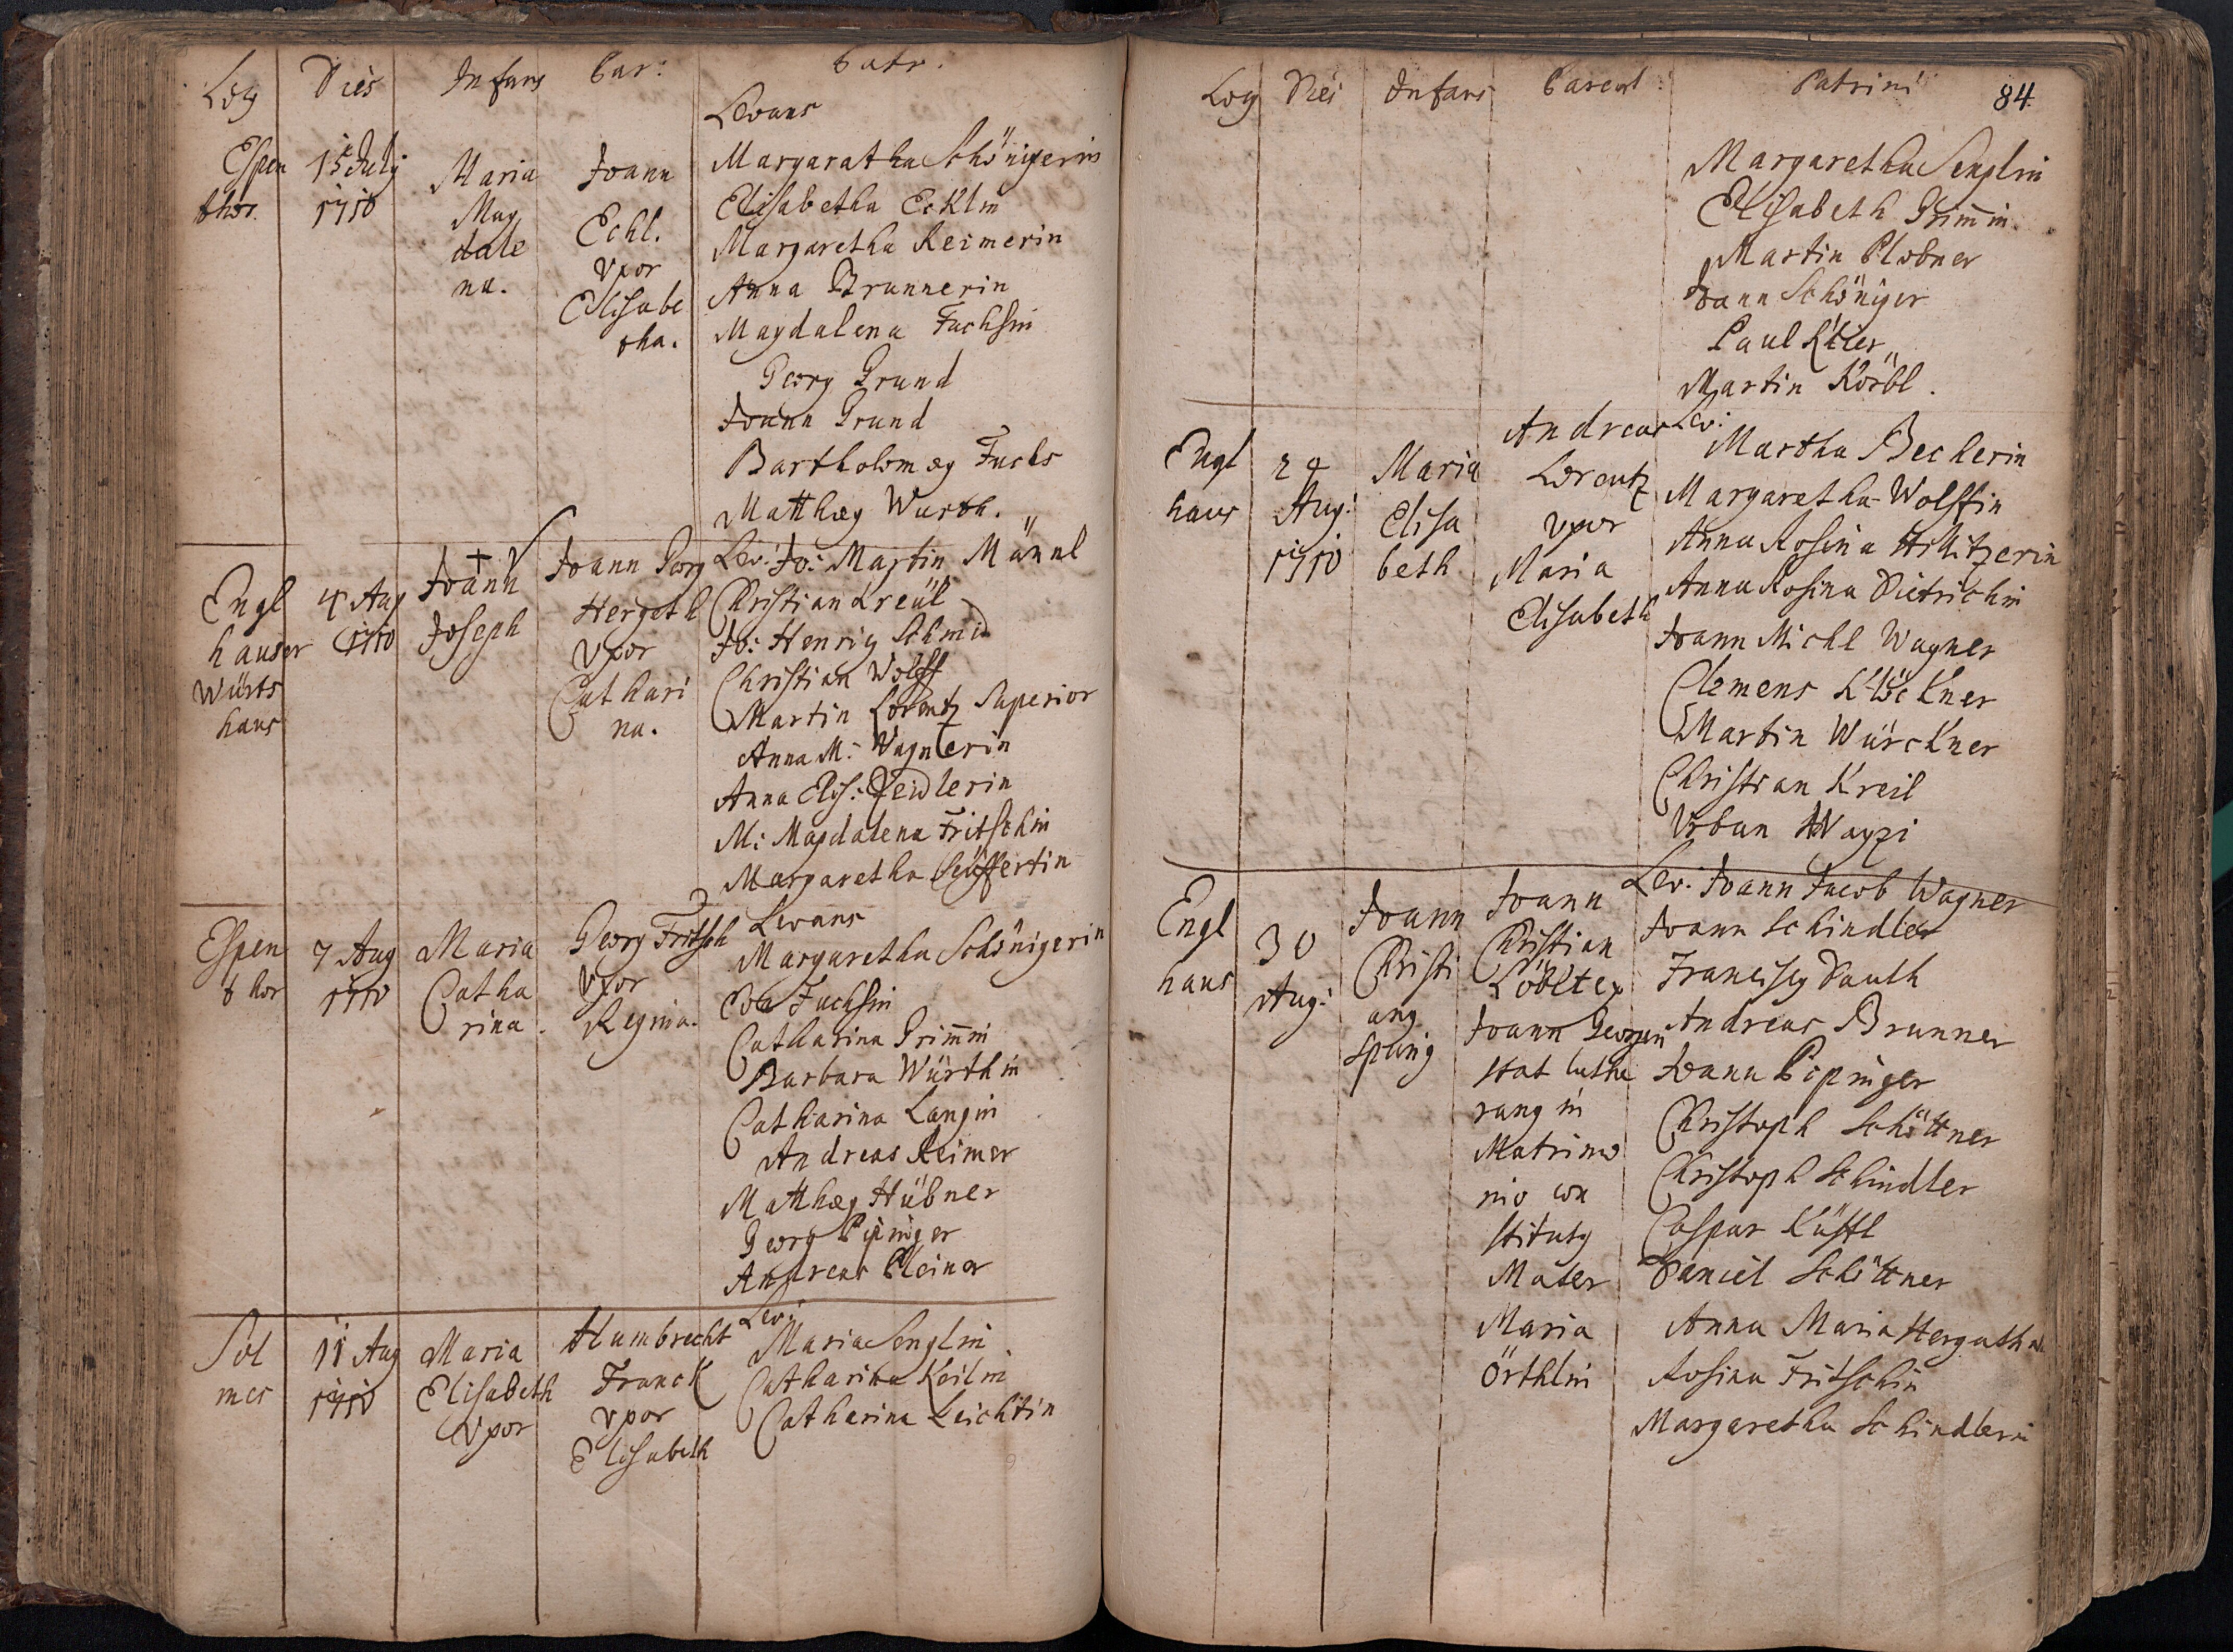 Locus Dies Infans Par: Patr.
Levans
Espen
thor.
15 July
1710
Maria
Mag
dale
na.
Joann
Eckl.
Vxor
Elisabe
tha.
Margaratha Schönigerin
Elisabetha Ecklin
Margaretha Reimerin
Anna Brunnerin
Magdalena Fuchsin
Georg Grund
Joann Grund
Bartholomæus Fuchs
Matthæus Wurth.
Engl
hauser
Würts
haus
4 Aug
1710
Joann
Joseph
Joann Georg
Hergeth
Vxor
Cathari
na.
Lev: Jo: Martin Männl
Christian Kreül
Jo: Henrig Schmid
Christian Wolff
Martin Lorentz Superior
Anna M: Wagnerin
Anna Elis: Zeidlerin
M: Magdalena Fritschin
Margaretha Seüffertin
Espen
thor
7 Aug
1710
Maria
Catha
rina.
Georg Fritsch
Vxor
Regina.
Levans
Margaretha Schönigerin
Eva Fuchsin
Catharina Grim̄in
Barbara Würthin
Catharina Langin
Andreas Reimer
Matthæus Hübner
Georg Pipinger
Andreas Pleiner
Sol
mes
11 Aug
1710
Maria
Elisabeth
Vxor
Hambrecht
Franck
vxor
Elisabeth
Lev:
Maria Senglin
Catharina Keilin
Catharina Leichtin
Locus Dies Infans Parent: Patrini 84.
Margaretha Senglin
Elisabeth Grim̄in.
Martin Plobner
Joann Schöniger
Paul
Martin Körbl.
Engl
haus
29
Aug:
1710
Maria
Elisa
beth
Andreas
Lorentz
vxor
Maria
Elisabeth
Lev:
Martha Becherin
Margaretha Wolffin
Anna Rosina
Anna Rosina Dietrichin
Joann Michl Wagner
Clemens Klöckner
Martin Würckner
Christian Kreil
Vrban
Engl
haus
30
Aug:
Joann
Christi
anus
spurius
Joann
Christian
Joann Georgen
stat luthe
ranus in
Matrimo
nio con
stitutus
Mater
Maria
Örthlin
Lev: Joann Jacob Wagner
Joann Schindler
Franciscus Dauth
Andreas Brunner
Joann Pipinger
Christoph Schöttner
Christoph Schindler
Caspar Küstl
Daniel Schöttner
Anna Maria
Rosina Fritschin
Margaretha Schindlerin